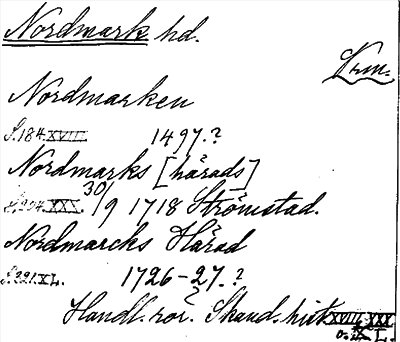 Nordmark hd.
Vrm.
Nordmarken
S.184.XVIII. 1497.?
Nordmarks [härads]
S.294.XXX. 30/9 1718 Strömstad.
Nordmarcks Härad
S.221.XL. 1726-27.?
Handl. rör. Skand. hist. XVIII, XXX
o. XL.